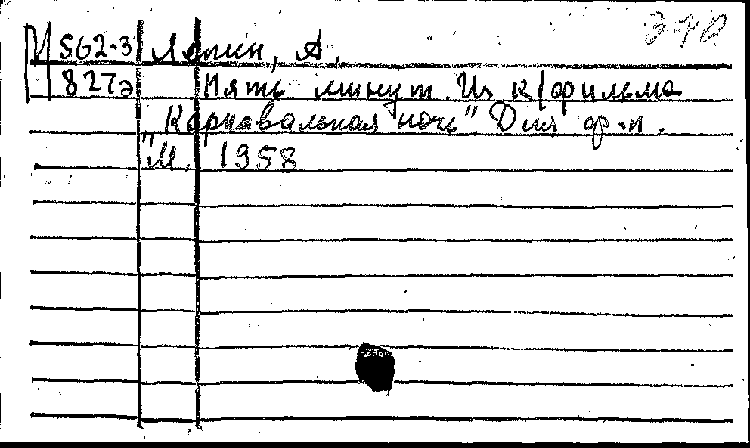 340
М 562-3 Лепин, А.
827э Пять минут. Из к/фильма
"Карнавальная ночь". Для ф-п.
М. 1958